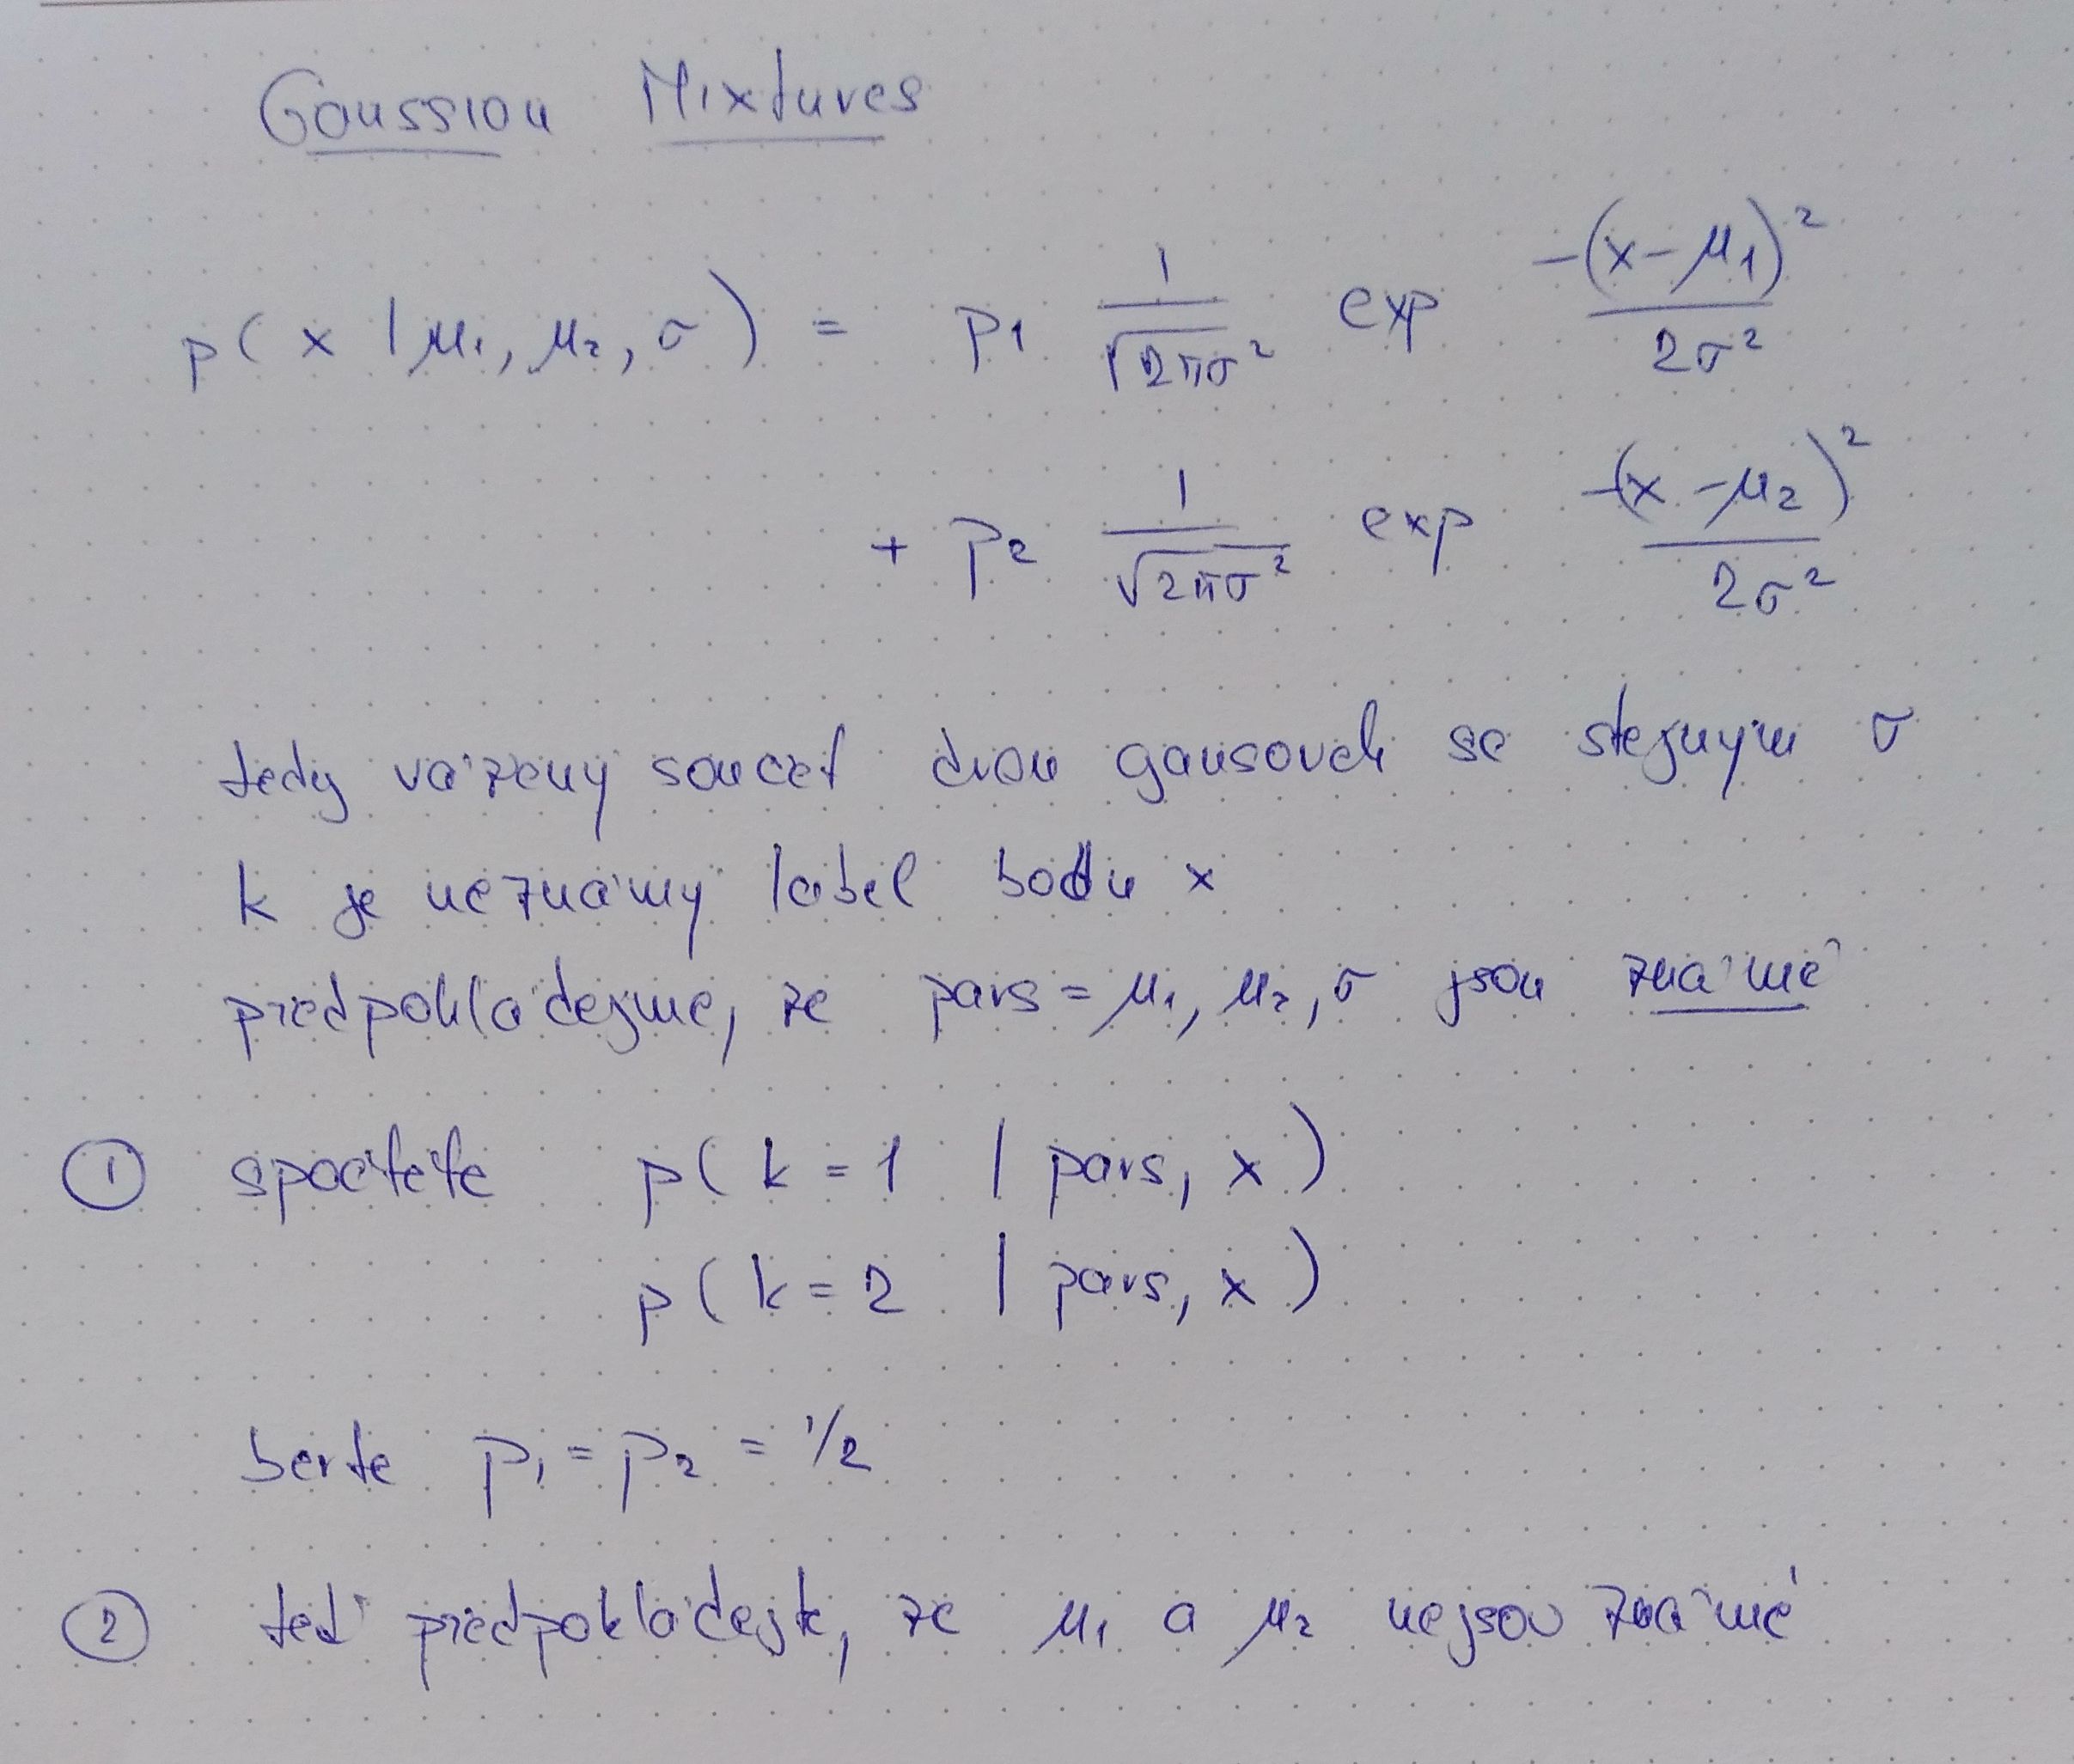 Gaussian Mixtures
p( x | μ₁, μ₂, σ ) = p₁ 1/√2πσ² exp -(x-μ₁)²/2σ²
+ p₂ 1/√2πσ² exp -(x-μ₂)²/2σ²
tedy vážený součet dvou gausovek se stejným σ
k je neznámý label bodu x
předpokládejme, že pars = μ₁, μ₂, σ jsou známé
① spočtěte p( k = 1 | pars, x )
p( k = 2 | pars, x )
berte p₁ = p₂ = 1/2
② teď předpokládejte, že μ₁ a μ₂ nejsou známé